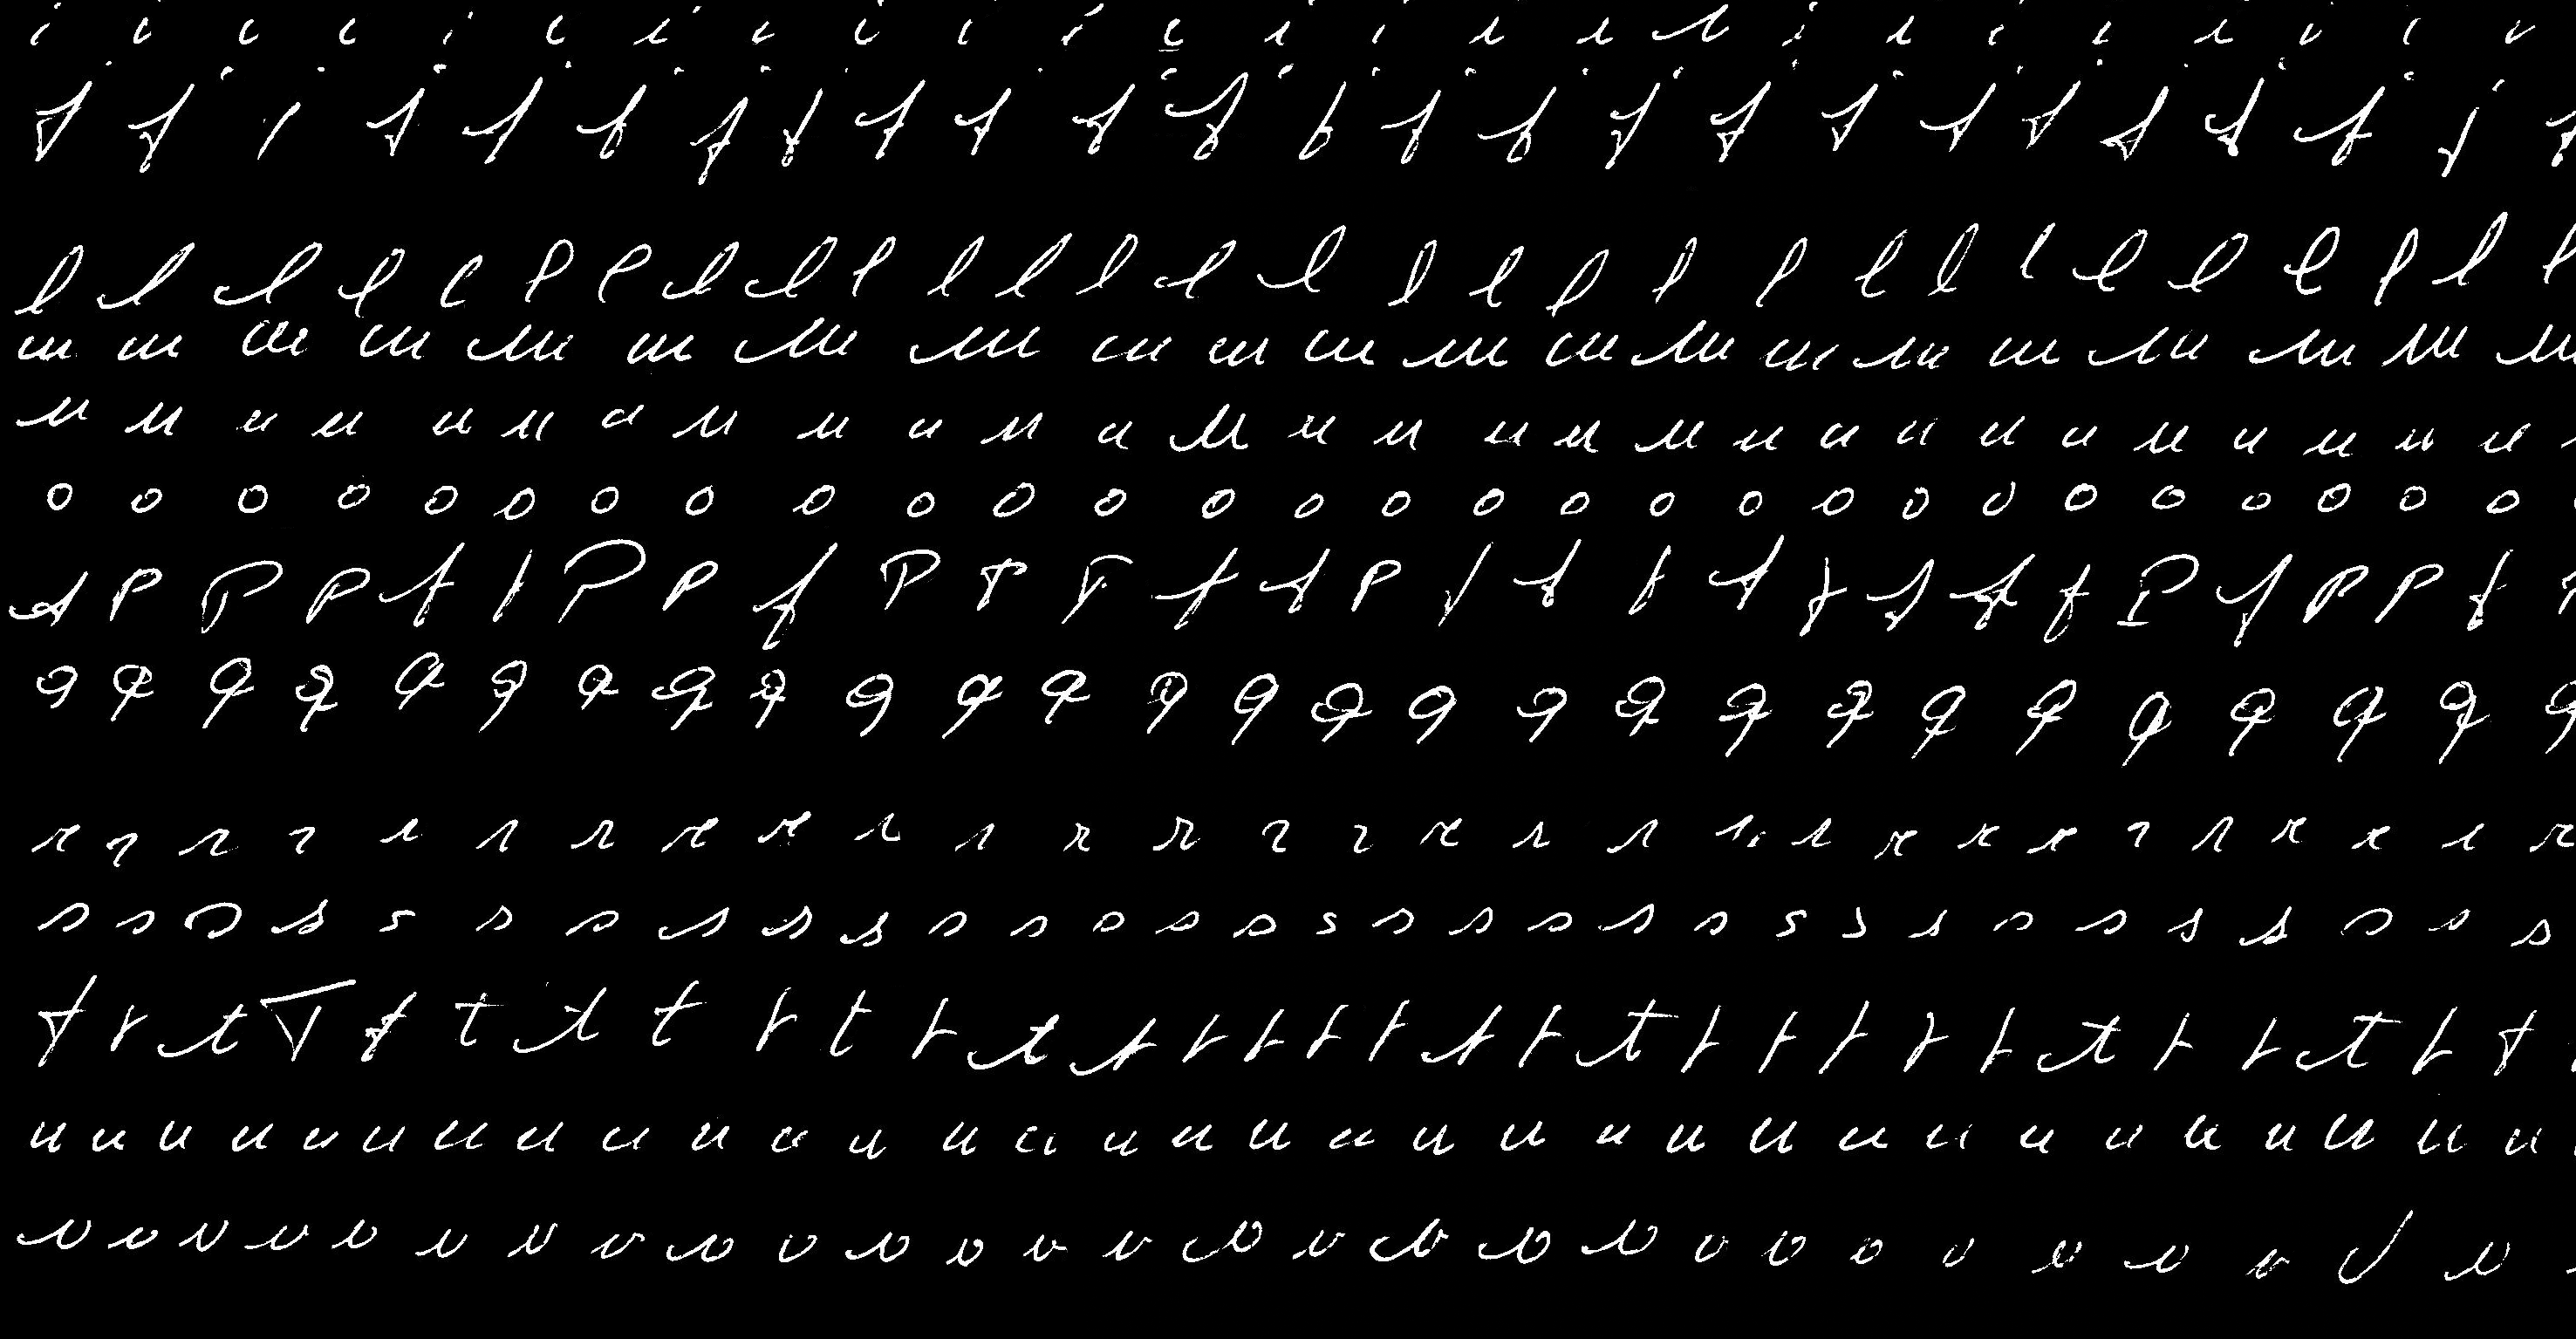 i i i i i i i i i i i i i i i i i i i i i i i i i
j j j j j j j j j j j j j j j j j j j j j j j j j
l l l l l l l l l l l l l l l l l l l l l l l l l l l l l
m m m m m m m m m m m m m m m m m m m m m
n n n n n n n n n n n n n n n n n n n n n n n n n n n n
o o o o o o o o o o o o o o o o o o o o o o o o o o o o
p p p p p p p p p p p p p p p p p p p p p p p p p p p p
q q q q q q q q q q q q q q q q q q q q q q q q q q q
r r r r r r r r r r r r r r r r r r r r r r r r r r r r r
s s s s s s s s s s s s s s s s s s s s s s s s s s s s s s s
t t t t t t t t t t t t t t t t t t t t t t t t t t t t t t t
u u u u u u u u u u u u u u u u u u u u u u u u u u u u u u u u
v v v v v v v v v v v v v v v v v v v v v v v v v v v v